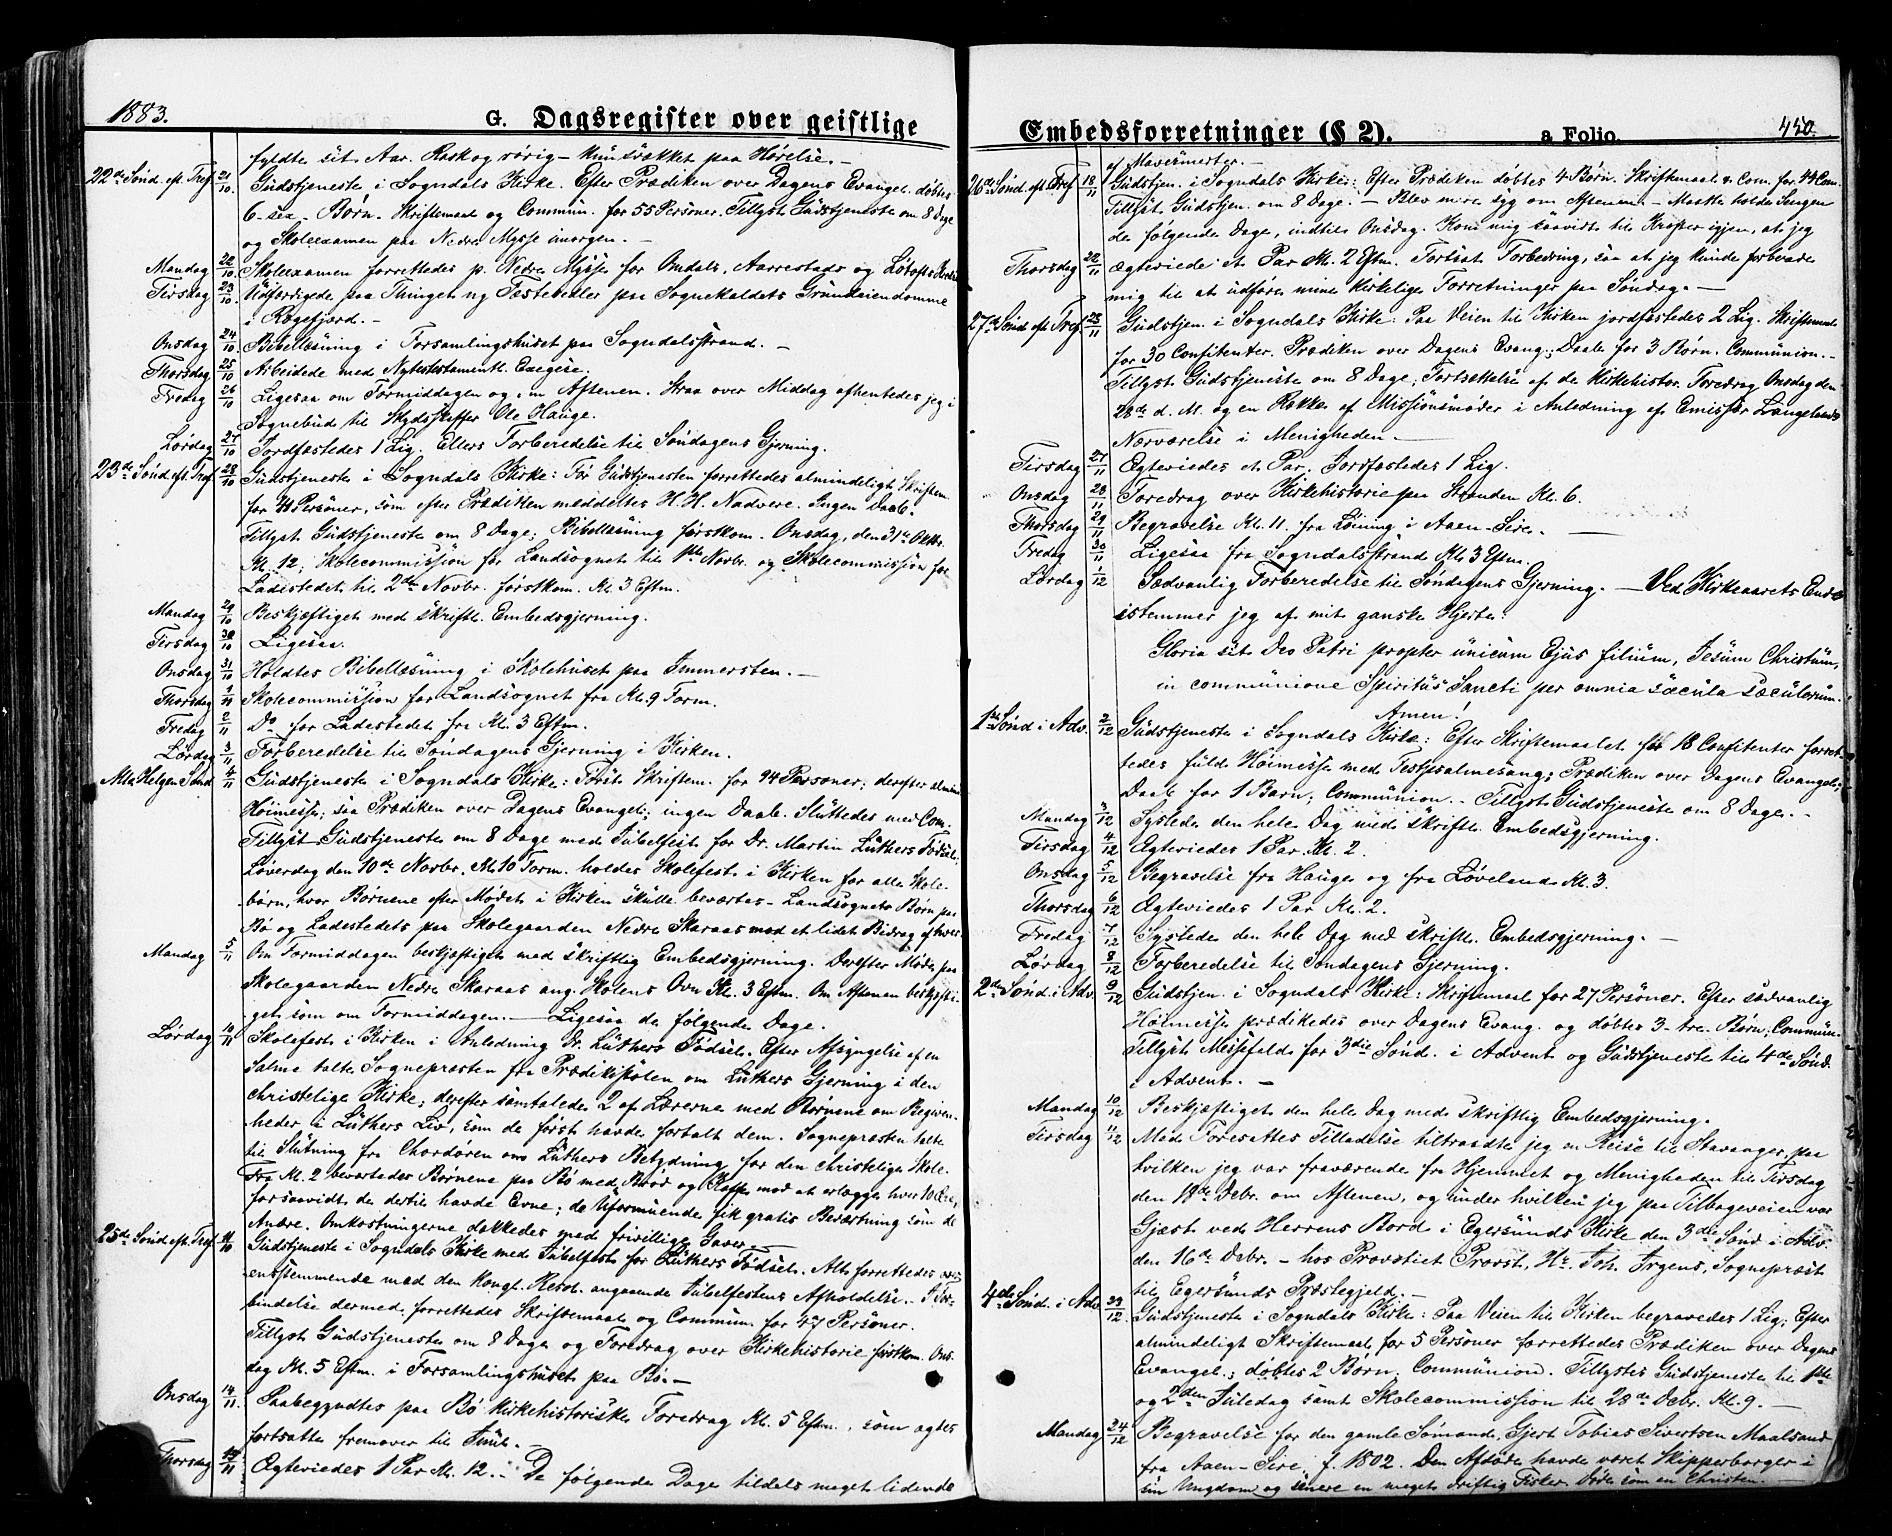 1883.
G. Dagsregister over geistlige
fyldte sit Aar. Rask og rørig – kun svækket paa Hørelse. –
22de Sønd. eft. Tref. 21/10 Gudstjeneste i Sogndals Kirke. Efter Prædiken over Dagens Evangel. døbtes
6 – sex – Børn. Skriftemaal og Commun. for 55 Personer. Tillyst Gudstjeneste om 8 Dage
og Skoleexamen paa Nedre Mysse imorgen. –
Mandag 22/10 Skoleexamen forrettedes p. Nedre Mysse for Omdals, Aarrestads og Løtofts
Tirsdag 23/10 Udfærdigede paa Thinget ny Fæstesedler paa Sognekaldets Grundeiendomme
i Rægefjord. –
Onsdag 24/10 Bibellæsning i Forsamlingshuset paa Sogndalsstrand. –
Thorsdag 25/10 Arbeidede med Nytestamentl. Exegese.
Fredag 26/10 Ligesaa om Formiddagen og om Aftenen. Straa over Middag afhentedes jeg i
Sognebud til Skydsskaffer Ole Hauge.
Lørdag 27/10 Jordfæstedes 1 Lig. Ellers Forberedelse til Søndagens Gjerning.
23de Sønd. eft. Tref. 28/10 Gudstjeneste i Sogndals Kirke: Før Gudstjenesten forrettedes almindeligt Skriftem.
for Personer, som efter Prædiken meddeltes H. H. Nadvere. Ingen Daab.
Tillyst Gudstjeneste om 8 Dage; Bibellæsning førstkom. Onsdag, den 31te Oktbr.
Kl. 12; Skolecommission for Landsognet til 1ste Novbr. og Skolecommission for
Ladestedet til 2den Novbr. førstkom. Kl. 3 Eftm.
Mandag 29/10 Beskjæftiget med skriftl. Embedsgjerning.
Tirsdag 30/10 Ligesaa.
Onsdag 31/10 Holdtes Bibellæsning i Skolehuset paa Immersten. –
Thorsdag 1/11 Skolecommission for Landsognet fra Kl. 9 Form.
Fredag 2/11 Do for Ladestedet fra Kl. 3 Eftm.
Lørdag 3/11 Forberedelse til Søndagens Gjerning i Kirken.
Alle Helgen Sønd. 4/11 Gudstjeneste i Sogndals Kirke: Først Skriftem. for 94 Personer; derefter almin.
Høimesse; saa Prædiken over Dagens Evangel.; ingen Daab. Sluttedes med Com.
Tillyst Gudstjeneste om 8 Dage med Jubelfest for Dr. Martin Luthers Fødsel;
Løverdag den 10de Novbr. Kl. 10 Form. holdes Skolefest i Kirken for alle Skole-
børn, hvor Børnene efter Mødet i Kirken skulle beværtes – Landsognets Børn paa
Bø og Ladestedets paa Skolegaarden Nedre Skaraas mod et lidet Bidrag af hver.
Mandag 5/11 Om Formiddagen beskjæftiget med skriftlig Embedsgjerning. Derefter Møde paa
Skolegaarden Nedre Skaraas ang. Skolens Ovn Kl. 3 Eftm. Om Aftenen beskjæfti-
get som om Formiddagen. – Ligesaa de følgende Dage.
Lørdag 10/11 Skolefest i Kirken i Anledning Dr. Luthers Fødsel. Efter Afsyngelse af en
Salme talte Sognepræsten fra Prædikestolen om Luthers Gjerning i den
christelige Kirke; derefter samtalede 2 af Lærerne med Børnene om Begiven-
heder i Luthers Liv, som de først havde fortalt dem. Sognepræsten talte
til Slutning fra Chordøren om Luthers Betydning for den christelige Skole.
Fra Kl. 2 beværtedes Børnene paa Bø med Brød og Kaffe mod at erlægge hver 10 Øre,
forsaavidt de dertil havde Evne; de Uformuende fik gratis Beværtning som de
Andre. Omkostningerne dækkedes med frivillige Gaver.
25de Sønd. eft. Tref. 11/10 Gudstjeneste i Sogndals Kirke med Jubelfest for Luthers Fødsel. Alt forrettedes over-
ensstemmende med den Kongl. Resol. angaaende Jubelfestens Afholdelse. I For-
bindelse dermed forrettedes Skriftemaal og Commun. for 47 Personer.
Tillyst Gudstjeneste om 8 Dage og Foredrag over Kirkehistorie førstkom. Ons-
dag Kl. 5 Eftm. i Forsamlingshuset paa Bø. –
Onsdag 14/11 Paabegyndtes paa Bø kirkehistoriske Foredrag Kl. 5 Eftm., som agtes
fortsatte fremover til Juul. –
Thorsdag 15/11 Ægteviedes 1 Par Kl. 12. – De følgende Dage tildels meget lidende
Embedsforretninger (§ 2).
a Folio.
450.
af Mavesmerter. –
26de Sønd. eft. Tref. 18/11 Gudstjen. i Sogndals Kirke: Efter Prædiken døbtes 4 Børn. Skriftemaal & Com. for 44 Com.
Tillyst Gudstjen. om 8 Dage. – Blev mere syg om Aftenen. – Maatte holde Sengen
de følgende Dage, indtil Onsdag. Kom mig saavidt til Kræfter igjen, at jeg
Thorsdag 22/11 ægteviede et Par Kl. 2 Eftm. Fortsat Forbedring, saa at jeg kunde forberede
mig til at udføre mine kirkelige Forretninger paa Søndag. –
27de Sønd. eft. Tref. 25/11 Gudstjen. i Sogndals Kirke: Paa Veien til Kirken jordfæstedes 2 Lig. Skriftemaal
for 30 Confitenter. Prædiken over Dagens Evang.; Daab for 3 Børn. Communion. –
Tillyst Gudstjeneste om 8 Dage; Fortsættelse af de kirkehistor. Foredrag Onsdag den
28de d. M. og en Række af Missionsmøder i Anledning af Emissær Langelands
Nærværelse i Menigheden. –
Tirsdag 27/11 Ægteviedes et Par. Jordfæstedes 1 Lig.
Onsdag 28/11 Foredrag over Kirkehistorie paa Stranden Kl. 6.
Thorsdag 29/11 Begravelse Kl. 11. fra Løining i Aaen-Sire. –
Fredag 30/11 Ligesaa fra Sogndalsstrand Kl. 3 Eftm.
Lørdag 1/12 Sædvanlig Forberedelse til Søndagens Gjerning. – Ved Kirkeaarets Ende
istemmer jeg af mit ganske Hjerte:
Gloria sit Deo Patri propter unicum Ejus filium, Jesum Christum,
in communione Spiritus Sancti per omnia sæcula sæculorum.
Amen!
1ste Sønd i Adv. 2/12 Gudstjeneste i Sogndals Kirke: Efter Skriftemaalet for 18 Confitenter forret-
tedes fuld Høimesse med Festpsalmesang; Prædiken over Dagens Evangel.;
Daab for 1 Barn; Communion. – Tillyst Gudstjeneste om 8 Dage. –
Mandag 3/12 Sysledes den hele Dag med skriftl. Embedsgjerning.
Tirsdag 4/12 Ægteviedes 1 Par Kl. 2.
Onsdag 5/12 Begravelse fra Hauge og fra Løveland Kl. 3.
Thorsdag 6/12 Ægteviedes 1 Par Kl. 2.
Fredag 7/12 Syslede den hele Dag med skriftl. Embedsgjerning. –
Lørdag 8/12 Forberedelse til Søndagens Gjerning.
2den Sønd. i Adv. 9/12 Gudstjen. i Sogndals Kirke: Skriftemaal for 27 Personer. Efter sædvanlig
Høimesse prædikedes over Dagens Evang. og døbtes 3 – tre – Børn; Commun.
Tillyst Messefald for 3die Sønd. i Advent og Gudstjeneste til 4de Sønd.
i Advent. –
Mandag 10/12 Beskjæftiget den hele Dag med skriftlig Embedsgjerning.
Tirsdag 11/12 Med Foresattes Tilladelse tiltraadte jeg en Reise til Stavanger, paa
hvilken jeg var fraværende fra Hjemmet og Menigheden til Tirsdag
den 18de Debr. om Aftenen, og under hvilken jeg paa Tilbageveien var
Gjæst ved Herrens Bord i Egersunds Kirke den 3die Sønd. i Adv.
den 16de Debr. – hos Provstiet Provst, Hr. Joh. Jrgens, Sognepræst
til Egersunds Præstegjeld. –
4de Sønd. i Adv. 23/12 Gudstjeneste i Sogndals Kirke: Paa Veien til Kirken begravedes 1 Lig; Efter
almindeligt Skriftemaal for 5 Personer forrettedes Prædiken over Dagens
Evangel.; døbtes 2 Børn; Communion. Tillystes Gudstjeneste til 1ste
og 2den Juledag samt Skolecommission til 28de Debr. Kl. 9. –
Mandag 24/12 Begravelse for den gamle Sømand, Gjert Tobias Sivertsen Maalsand
fra Aaen-Sire, f. 1802. Den Afdøde havde været Skipperborger i
sin Ungdom og senere en meget driftig Fisker. Døde som en Christen. –